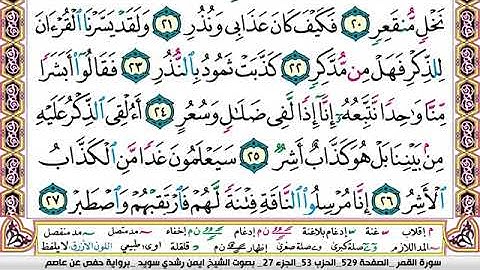 نَخْلٍ مُّنقَعِرٍ ٢٠ فَكَيْفَ كَانَ عَذَابِى وَنُذُرِ ٢١ وَلَقَدْ يَسَّرْنَا ٱلْقُرْءَانَ
لِلذِّكْرِ فَهَلْ مِن مُّدَّكِرٍ ٢٢ كَذَّبَتْ ثَمُودُ بِٱلنُّذُرِ ٢٣ فَقَالُوٓا۟ أَبَشَرًا
مِّنَّا وَٰحِدًا نَّتَّبِعُهُۥٓ إِنَّآ إِذًا لَّفِى ضَلَٰلٍ وَسُعُرٍ ٢٤ أَءُلْقِىَ ٱلذِّكْرُ عَلَيْهِ
مِنۢ بَيْنِنَا بَلْ هُوَ كَذَّابٌ أَشِرٌ ٢٥ سَيَعْلَمُونَ غَدًا مَّنِ ٱلْكَذَّابُ
ٱلْأَشِرُ ٢٦ إِنَّا مُرْسِلُوا۟ ٱلنَّاقَةِ فِتْنَةً لَّهُمْ فَٱرْتَقِبْهُمْ وَٱصْطَبِرْ ٢٧
م إقلاب س غنة إدغام بلاغنة إدغام إخفاء مد متصل مد منفصل
المد اللازم صلة كبرى وي صلة صغرى إظهار قلقلة اوى طبيعي اللون الأزرق لا يلفظ
سورة القمر _الصفحة 529_الحزب 53_الجزء 27_ بصوت الشيخ ايمن رشدي سويد _برواية حفص عن عاصم